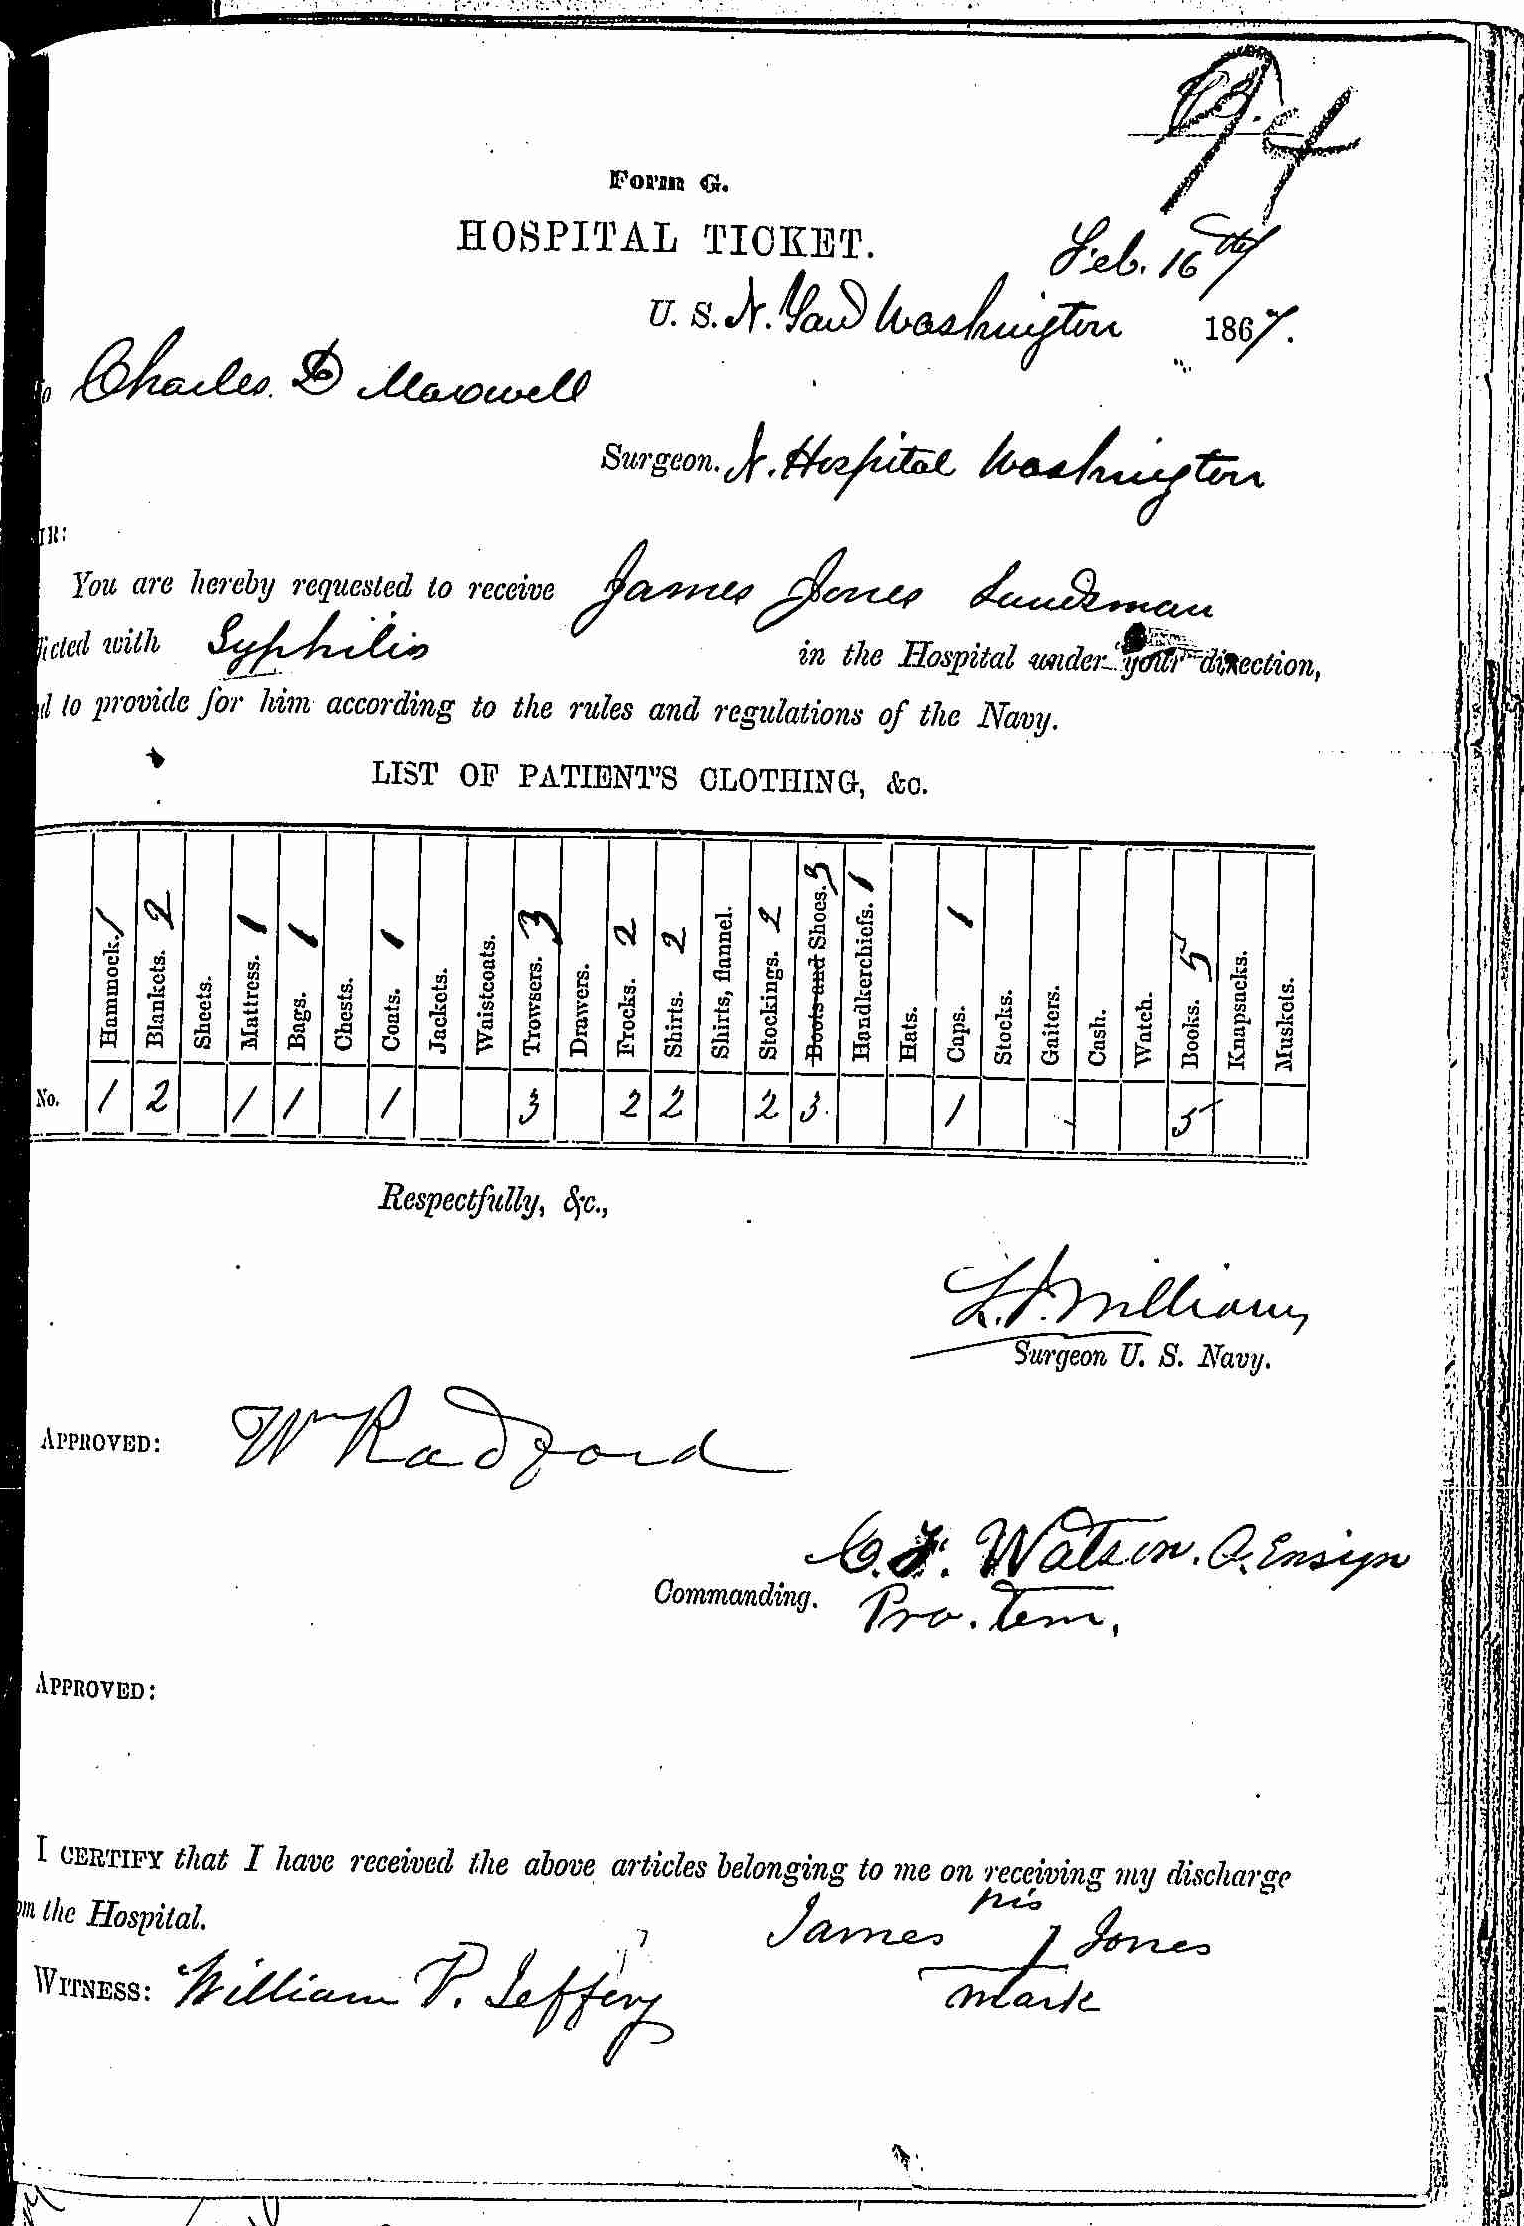 Form G.
HOSPITAL TICKET.
Feb. 16th
U. S. N. Yard Washington 1867.
Charles. D Maxwell
Surgeon. N. Hospital Washington
IR:
You are hereby requested to receive James Jones Landsman
icted with Syphilis in the Hospital under your direction,
d to provide for him according to the rules and regulations of the Navy.
LIST OF PATIENT'S CLOTHING, &c.
Hammock. 1 Blankets. 2 Sheets. Mattress. 1 Bags. 1 Chests. Coats. 1 Jackets. Waistcoats. Trowsers. 3 Drawers. Frocks. 2 Shirts. 2 Shirts, flannel. Stockings. 2 Boots and Shoes. 3 Handkerchiefs. 1 Hats. Caps. 1 Stocks. Gaiters. Cash. Watch. Books. 5 Knapsacks. Muskets.
No. 1 2 1 1 1 3 2 2 2 3. 1 5
Respectfully, &c.,
L. J. Williams
Surgeon U. S. Navy.
APPROVED: Wm Radford
C. F. Watson. A. Ensign
Commanding. Pro. Tem.
APPROVED:
I CERTIFY that I have received the above articles belonging to me on receiving my discharge
om the Hospital.
his
James Jones
mark
WITNESS: William P. Jeffery